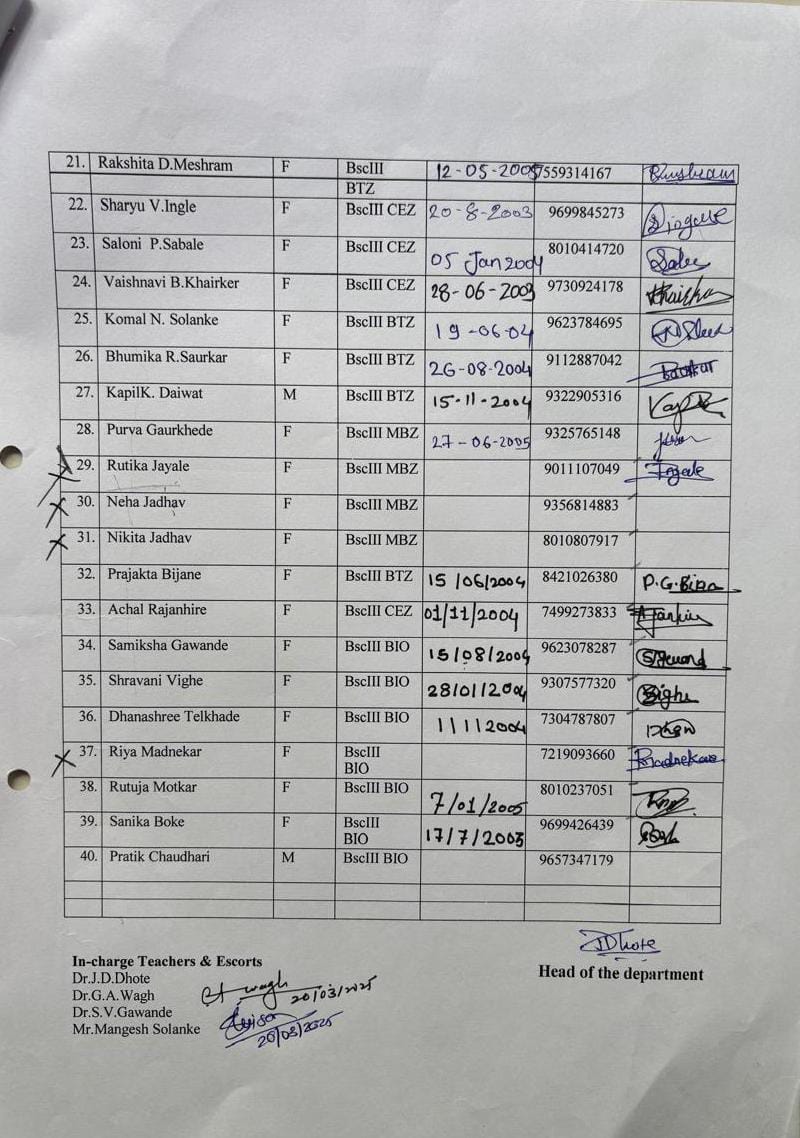 21. Rakshita D.Meshram F BscIII 12-05-2005 7559314167
BTZ
22. Sharyu V.Ingle F BscIII CEZ 20-8-2003 9699845273
23. Saloni P.Sabale F BscIII CEZ 05 Jan 2004 8010414720
24. Vaishnavi B.Khairker F BscIII CEZ 28-06-2003 9730924178
25. Komal N. Solanke F BscIII BTZ 19-06-04 9623784695
26. Bhumika R.Saurkar F BscIII BTZ 26-08-2004 9112887042
27. KapilK. Daiwat M BscIII BTZ 15-11-2004 9322905316
28. Purva Gaurkhede F BscIII MBZ 27-06-2005 9325765148
29. Rutika Jayale F BscIII MBZ 9011107049
30. Neha Jadhav F BscIII MBZ 9356814883
31. Nikita Jadhav F BscIII MBZ 8010807917
32. Prajakta Bijane F BscIII BTZ 15/06/2004 8421026380
33. Achal Rajanhire F BscIII CEZ 01/11/2004 7499273833
34. Samiksha Gawande F BscIII BIO 15/08/2004 9623078287
35. Shravani Vighe F BscIII BIO 28/01/2004 9307577320
36. Dhanashree Telkhade F BscIII BIO 11112004 7304787807
37. Riya Madnekar F BscIII 7219093660
BIO
38. Rutuja Motkar F BscIII BIO 7/01/2005 8010237051
39. Sanika Boke F BscIII 17/7/2003 9699426439
BIO
40. Pratik Chaudhari M BscIII BIO 9657347179
JDhote
In-charge Teachers & Escorts Head of the department
Dr.J.D.Dhote
Dr.G.A.Wagh 20/03/2025
Dr.S.V.Gawande
Mr.Mangesh Solanke 20/03/2025